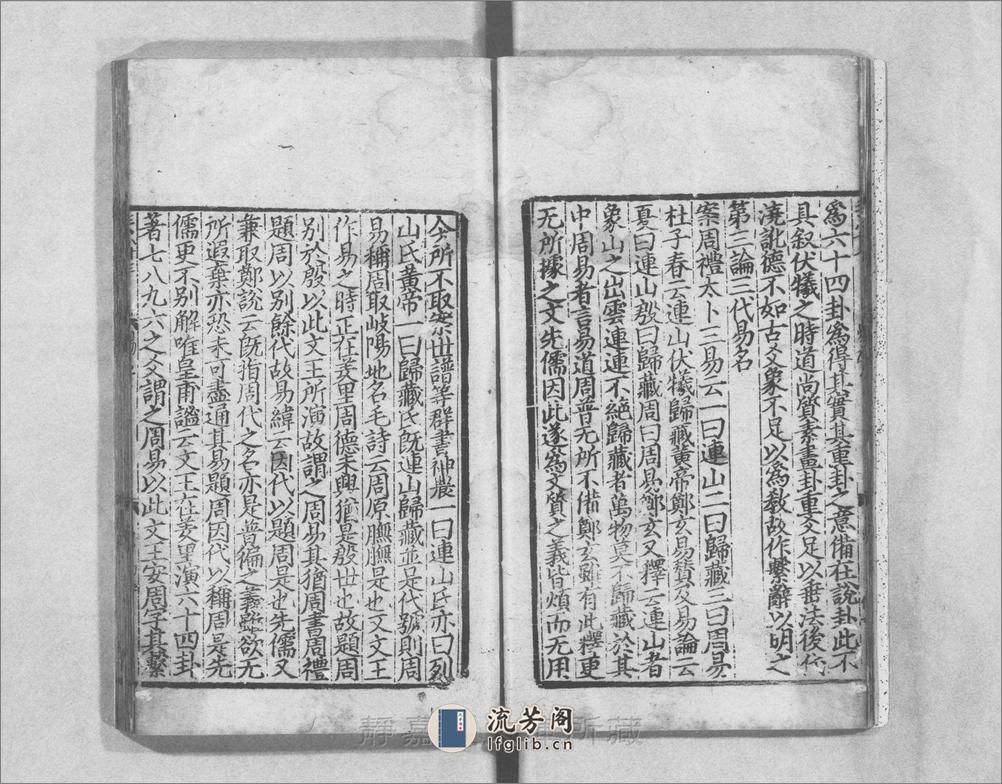 爲六十四卦爲得其實其重卦之意備在說卦此不
具叙伏犠之時道尚質素畫卦重爻足以垂法後代
澆訛德不如古爻象不足以爲敎故作繫辭以明之
第三論三代易名
案周禮太卜三易云一曰連山二曰歸藏三曰周易
杜子春云連山伏犠歸藏黃帝鄭玄易賛及易論云
夏曰連山殷曰歸藏周曰周易鄭玄又釋云連山者
象山之出雲連連不絕歸藏者萬物莫不歸藏於其
中周易者言易道周普无所不備鄭玄雖有此釋更
无所據之文先儒因此遂爲文質之義皆煩而无用
今所不取案世譜等群書神農一曰連山氏亦曰列
山氏黃帝一曰歸藏氏旣連山歸藏並是代號則周
易稱周取岐陽地名毛詩云周原膴膴是也又文王
作易之時正在羑里周德未興猶是殷世也故題周
別於殷以此文王所演故謂之周易其猶周書周禮
題周以別餘代故易緯云因代以題周是也先儒又
兼取鄭說云旣指周代之名亦是普徧之義雖欲无
所遐棄亦恐未可盡通其易題周因代以稱周是先
儒更不別解唯皇甫謐云文王在羑里演六十四卦
著七八九六之爻謂之周易以此文王安周字其繫
靜嘉 所藏
流芳阁
lfglib.cn